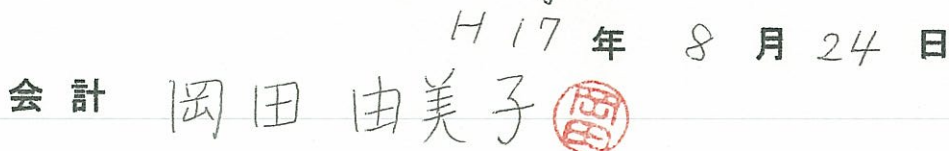 H17年 8月24日
会計 岡田 由美子 岡田